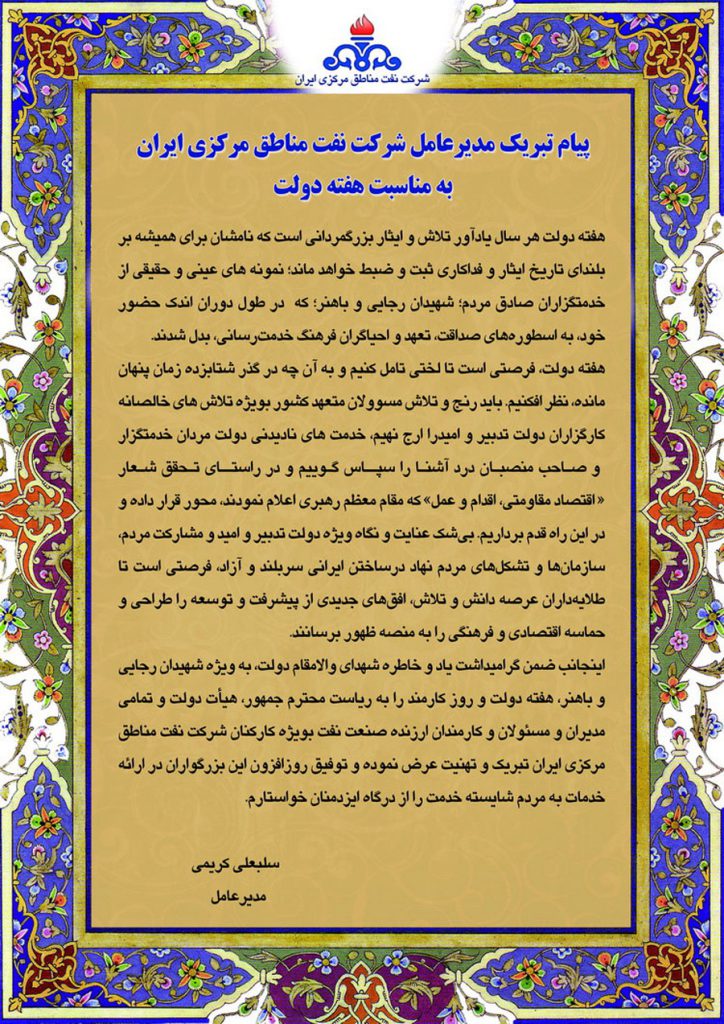 شرکت نفت مناطق مرکزی ایران
پیام تبریک مدیرعامل شرکت نفت مناطق مرکزی ایران
به مناسبت هفته دولت
هفته دولت هر سال یادآور تلاش و ایثار بزرگمردانی است که نامشان برای همیشه بر
بلندای تاریخ ایثار و فداکاری ثبت و ضبط خواهد ماند؛ نمونه های عینی و حقیقی از
خدمتگزاران صادق مردم؛ شهیدان رجایی و باهنر؛ که در طول دوران اندک حضور
خود، به اسطوره‌های صداقت، تعهد و احیاگران فرهنگ خدمت‌رسانی، بدل شدند.
هفته دولت، فرصتی است تا لختی تامل کنیم و به آن چه در گذر شتابزده زمان پنهان
مانده، نظر افکنیم. باید رنج و تلاش مسوولان متعهد کشور بویژه تلاش های خالصانه
کارگزاران دولت تدبیر و امیدرا ارج نهیم، خدمت های نادیدنی دولت مردان خدمتگزار
و صاحب منصبان درد آشنا را سپاس گوییم و در راستای تحقق شعار
«اقتصاد مقاومتی، اقدام و عمل» که مقام معظم رهبری اعلام نمودند، محور قرار داده و
در این راه قدم برداریم. بی‌شک عنایت و نگاه ویژه دولت تدبیر و امید و مشارکت مردم،
سازمان‌ها و تشکل‌های مردم نهاد درساختن ایرانی سربلند و آزاد، فرصتی است تا
طلایه‌داران عرصه دانش و تلاش، افق‌های جدیدی از پیشرفت و توسعه را طراحی و
حماسه اقتصادی و فرهنگی را به منصه ظهور برسانند.
اینجانب ضمن گرامیداشت یاد و خاطره شهدای والامقام دولت، به ویژه شهیدان رجایی
و باهنر، هفته دولت و روز کارمند را به ریاست محترم جمهور، هیأت دولت و تمامی
مدیران و مسئولان و کارمندان ارزنده صنعت نفت بویژه کارکنان شرکت نفت مناطق
مرکزی ایران تبریک و تهنیت عرض نموده و توفیق روزافزون این بزرگواران در ارائه
خدمات به مردم شایسته خدمت را از درگاه ایزدمنان خواستارم.
سلبعلی کریمی
مدیرعامل